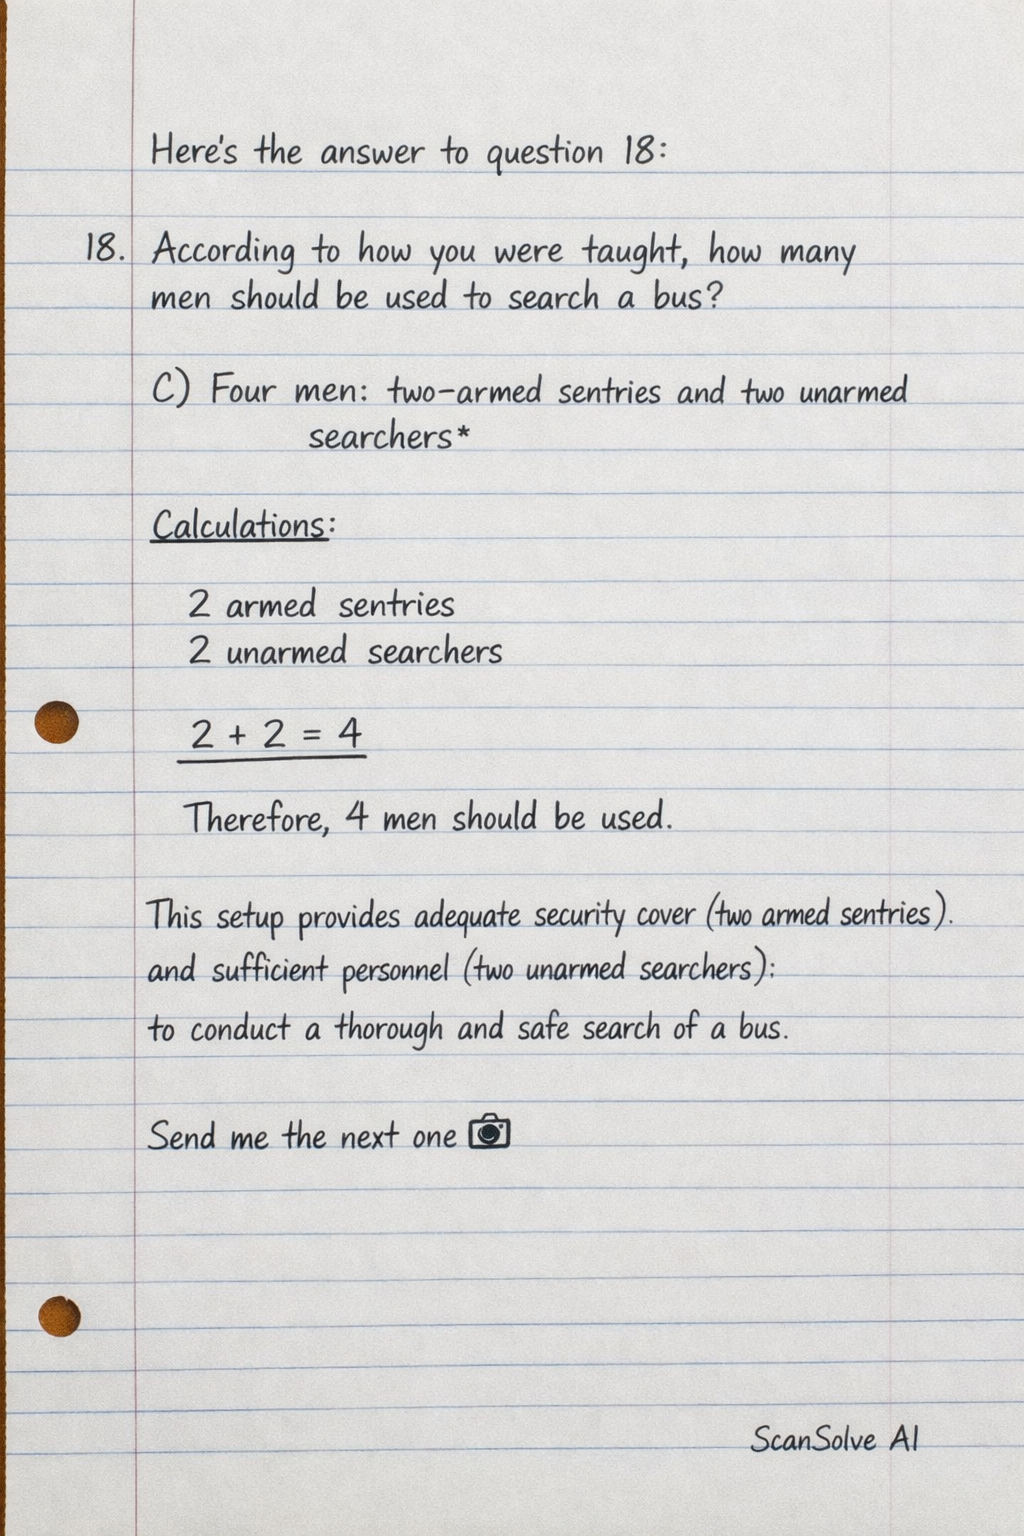 Here's the answer to question 18:
18. According to how you were taught, how many
men should be used to search a bus?
C) Four men: two-armed sentries and two unarmed
searchers*
Calculations:
2 armed sentries
2 unarmed searchers
2 + 2 = 4
Therefore, 4 men should be used.
This setup provides adequate security cover (two armed sentries).
and sufficient personnel (two unarmed searchers):
to conduct a thorough and safe search of a bus.
Send me the next one 📷
ScanSolve AI